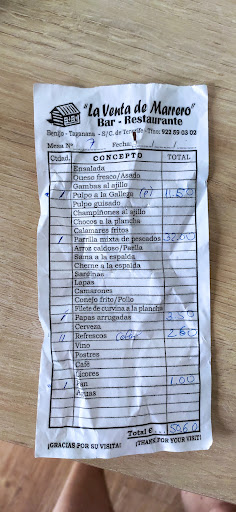 "La Venta de Marrero"
Bar - Restaurante
Benijo - Taganana - S/C. de Tenerife - Tfno: 922 59 03 02
Mesa Nº 7 Fecha:
Ctdad. CONCEPTO TOTAL
Ensalada
Queso fresco/Asado
Gambas al ajillo
1 Pulpo a la Gallega (P) 11.50
Pulpo guisado
Champiñones al ajillo
Chocos a la plancha
Calamares fritos
1 Parrilla mixta de pescados 32.00
Arroz caldoso/Paella
Sama a la espalda
Cherne a la espalda
Sardinas
Lapas
Camarones
Conejo frito/Pollo
Filete de curvina a la plancha
1 Papas arrugadas 3.50
Cerveza
11 Refrescos 2.60
Vino
Postres
Café
Licores
1 Pan 1.00
Aguas
Total € 50.60
¡GRACIAS POR SU VISITA! ¡THANK FOR YOUR VISIT!